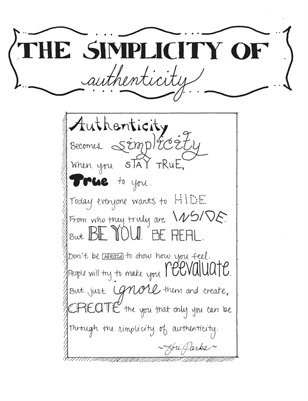 THE SIMPLICITY OF
authenticity
Authenticity
Becomes simplicity
When you STAY TRUE,
True to you.
Today everyone wants to HIDE
From who they truly are INSIDE.
But BE YOU. BE REAL.
Don't be AFRAID to show how you feel.
People will try to make you reevaluate.
But just ignore them and create,
CREATE the you that only you can be
Through the simplicity of authenticity.
~Tori Parks~